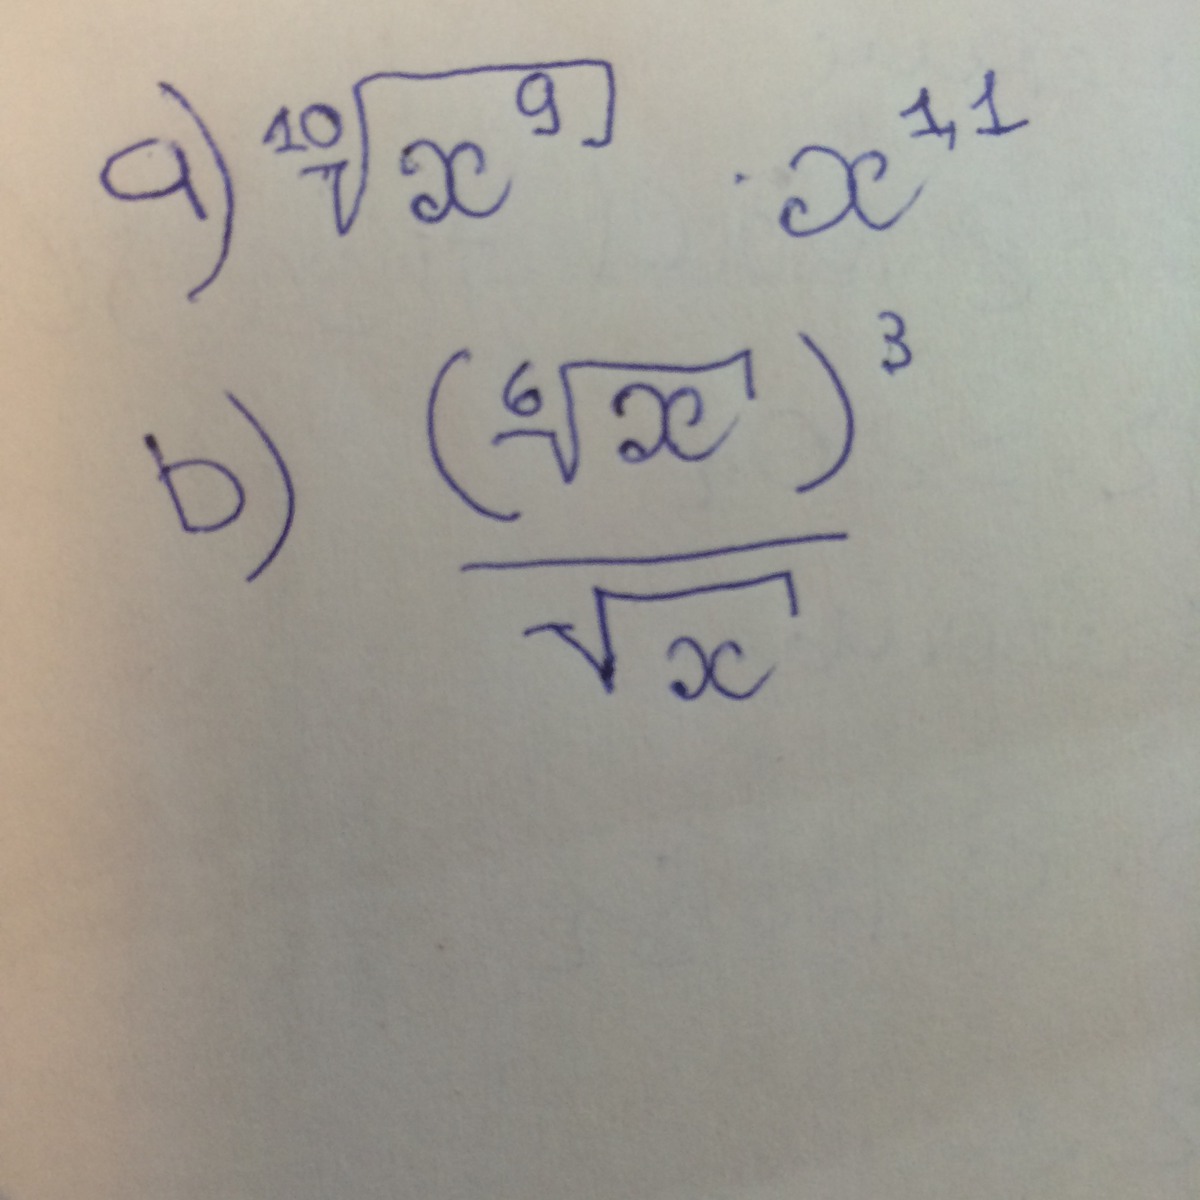 a) ¹⁰√x⁹ · x^1,1
b) (⁶√x)³ / √x